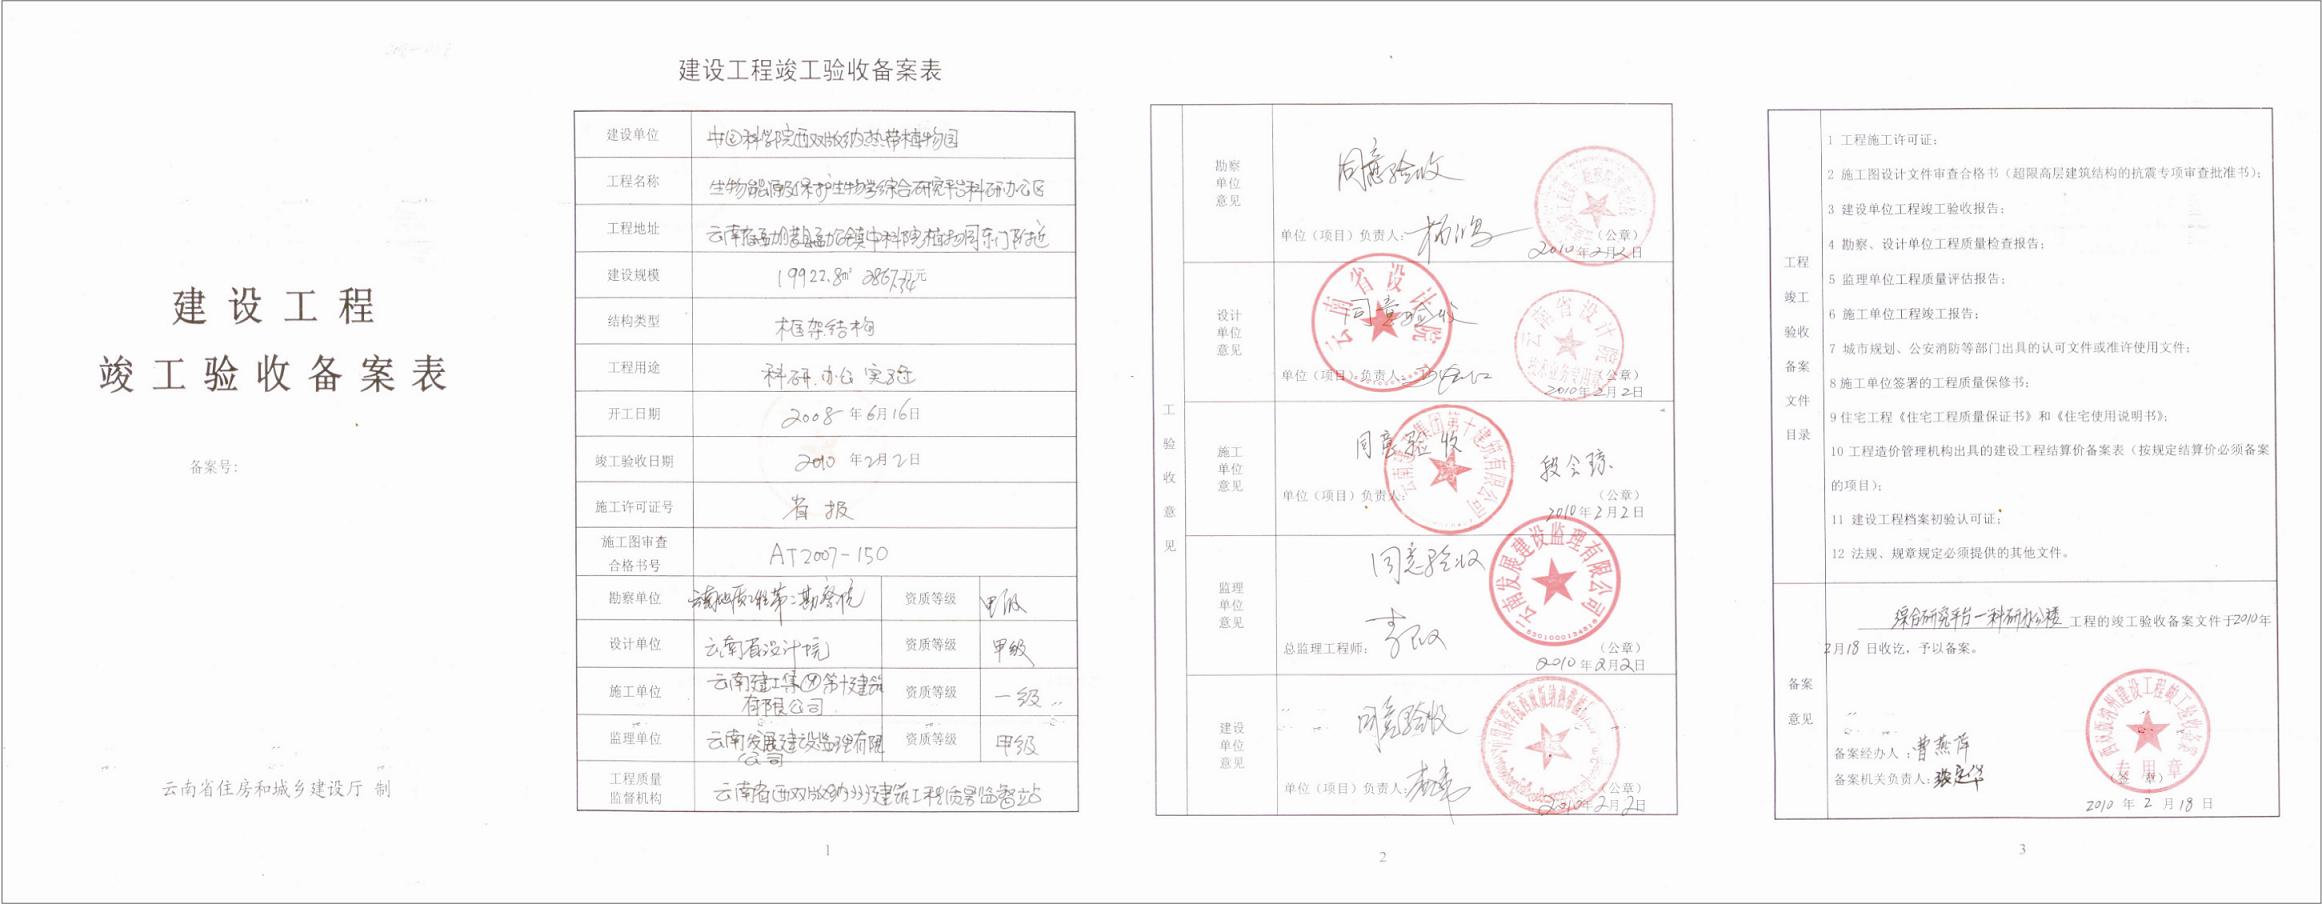 建设工程
竣工验收备案表
备案号：
云南省住房和城乡建设厅 制
建设工程竣工验收备案表
建设单位 中国科学院西双版纳热带植物园
工程名称 生物能源及保护生物学综合研究平台科研办公区
工程地址 云南省勐腊县勐仑镇中科院植物园东门附近
建设规模 19922.8㎡ 2867.34万元
结构类型 框架结构
工程用途 科研.办公 实验
开工日期 2008年6月16日
竣工验收日期 2010年2月2日
施工许可证号 省报
施工图审查
合格书号 AT2007-150
勘察单位 云南地质工程第二勘察院 资质等级 甲级
设计单位 云南省设计院 资质等级 甲级
施工单位 云南建工集团第十建筑
有限公司 资质等级 一级
监理单位 云南发展建设监理有限
公司 资质等级 甲级
工程质量
监督机构 云南省西双版纳州建筑工程质量监督站
1
工验收意见
勘察
单位
意见
同意验收
单位（项目）负责人：
（公章）
2010年2月2日
设计
单位
意见
同意验收
云南省设计院
云南省设计院
技术业务专用章
单位（项目）负责人：
（公章）
2010年2月2日
施工
单位
意见
同意验收
云南建工集团第十建筑有限公司
单位（项目）负责人：
段会琼
（公章）
2010年2月2日
监理
单位
意见
同意验收
云南发展建设监理有限公司
总监理工程师：
（公章）
2010年2月2日
建设
单位
意见
同意验收
单位（项目）负责人：
（公章）
2010年2月2日
2
工程
竣工
验收
备案
文件
目录
1 工程施工许可证；
2 施工图设计文件审查合格书（超限高层建筑结构的抗震专项审查批准书）；
3 建设单位工程竣工验收报告；
4 勘察、设计单位工程质量检查报告；
5 监理单位工程质量评估报告；
6 施工单位工程竣工报告；
7 城市规划、公安消防等部门出具的认可文件或准许使用文件；
8 施工单位签署的工程质量保修书；
9 住宅工程《住宅工程质量保证书》和《住宅使用说明书》；
10 工程造价管理机构出具的建设工程结算价备案表（按规定结算价必须备案
的项目）；
11 建设工程档案初验认可证；
12 法规、规章规定必须提供的其他文件。
备案
意见
综合研究平台一科研办公楼 工程的竣工验收备案文件于2010年
2月18日收讫，予以备案。
西双版纳州建设工程竣工验收备案
专用章
备案经办人：曹燕萍
备案机关负责人：
（签章）
2010年2月18日
3